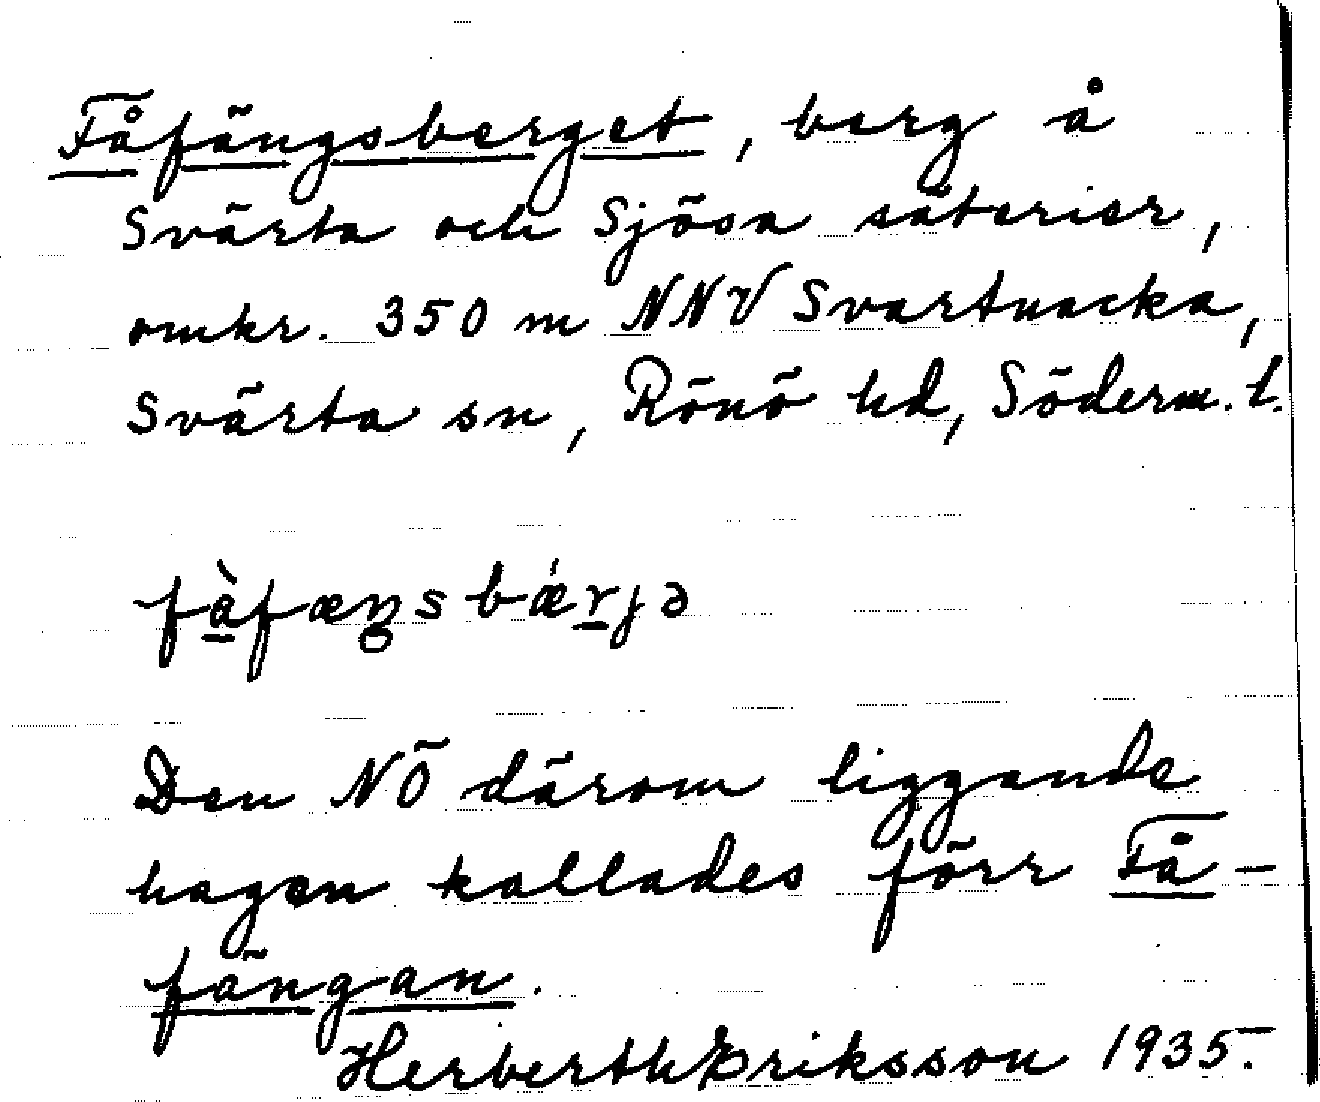 Fåfängsberget, berg å
Svärta och Sjösa säterier,
omkr. 350 m NNV Svartnacka,
Svärta sn, Rönö hd, Söderm. l.
fàfæŋsbǽrjə
Den NÖ därom liggande
hagen kallades förr Få-
fängan.
Herberth Eriksson 1935.